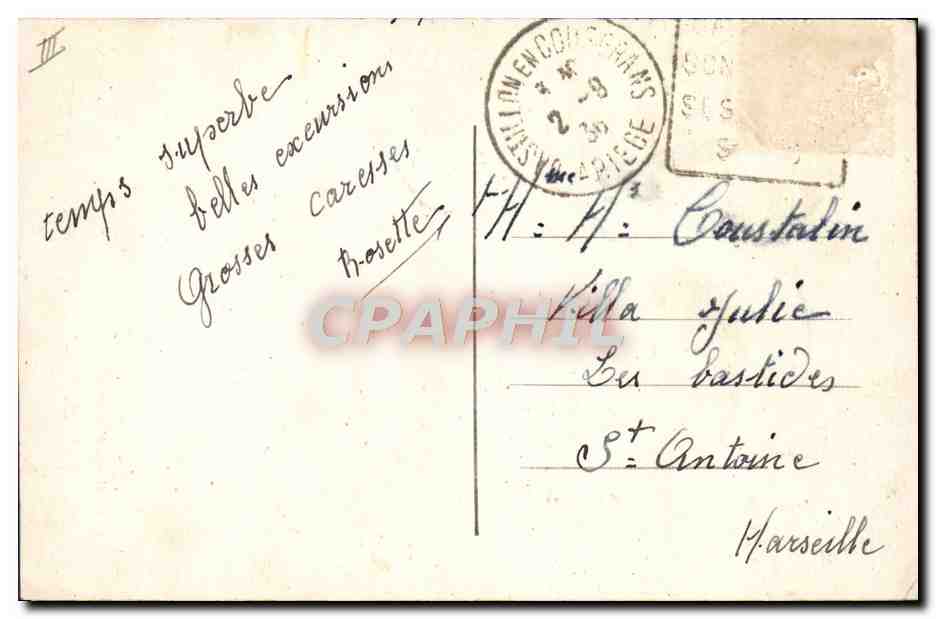 III
temps superbe
belles excursions
Grosses caresses
Rosette
CASTILLON EN COUSERANS
2 -8
36
ARIEGE
SES
M = Mme
Coustalin
Villa Julie
Les bastides
St = Antoine
Marseille
CPAPHIL